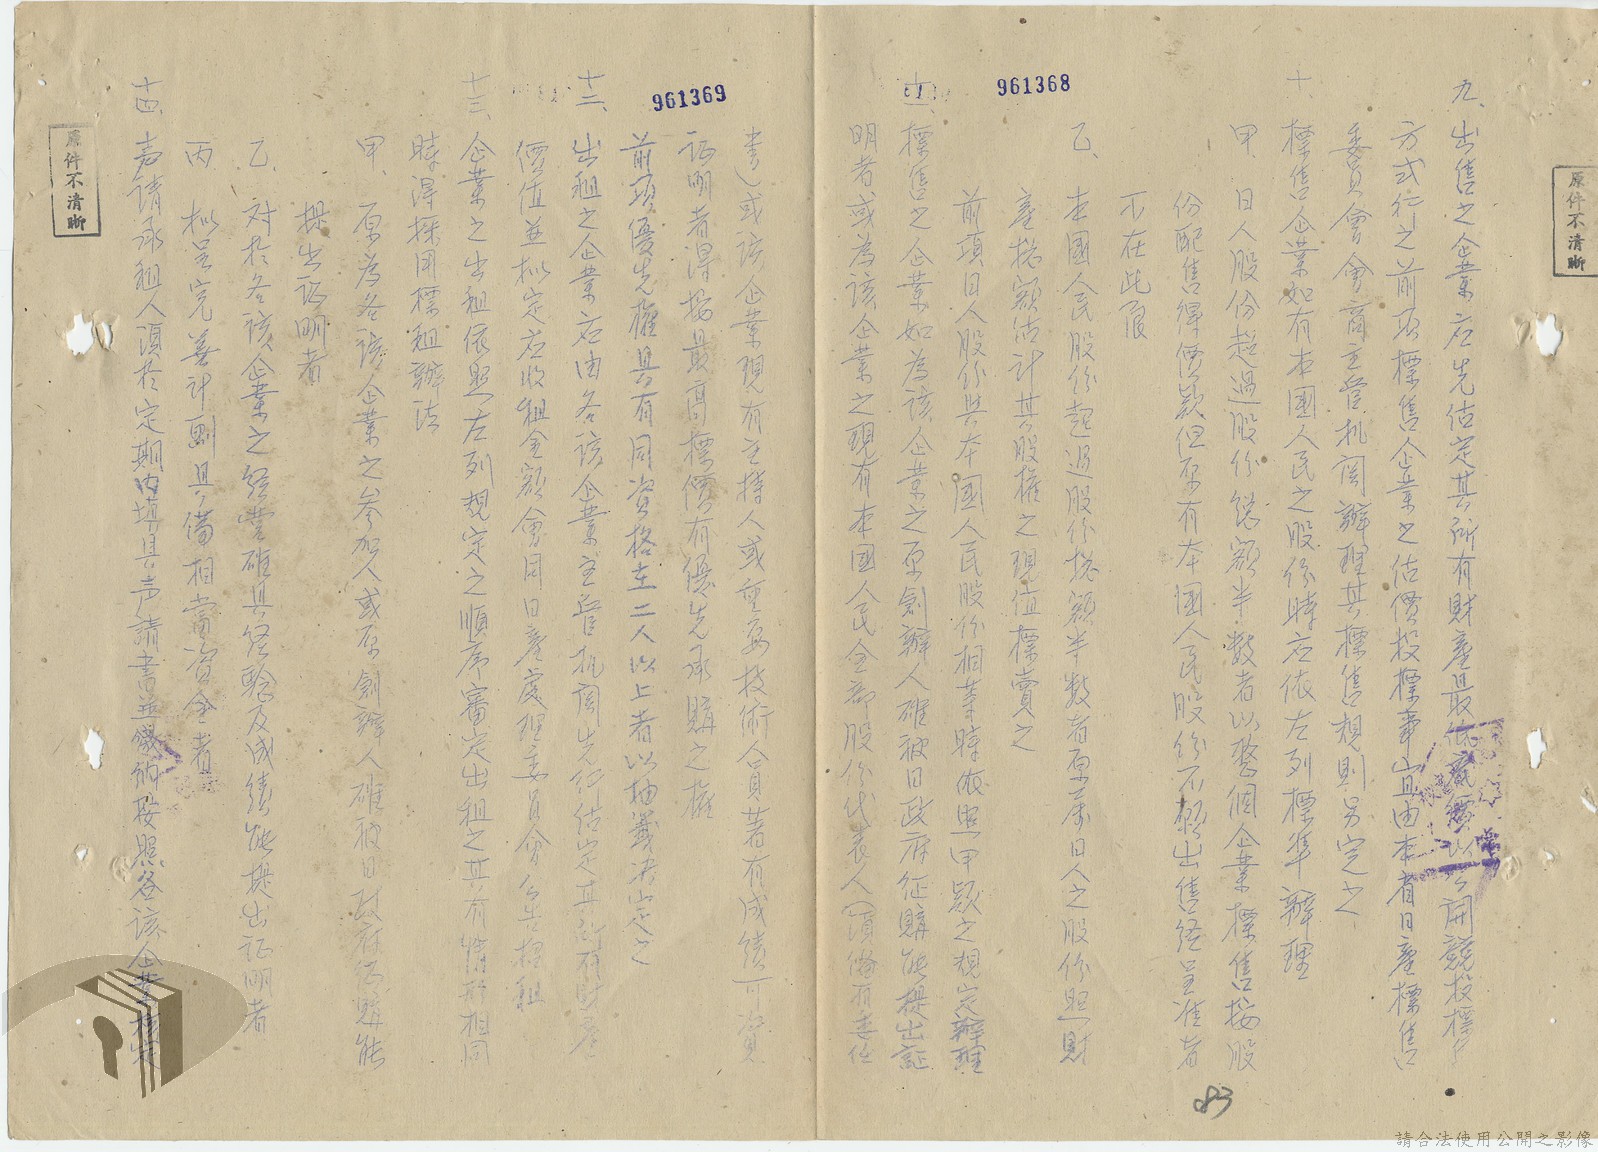 961368
原件不清晰
九、出售之企業应先估定其所有財產最低底價以公開競投標售
方式行之前項標售企業之估價投標事宜由本省日產標售
委員會會商主管机関辦理其標售規則另定之
十、標售企業如有本國人民之股份時应依左列標準辦理
甲、日人股份超過股份總額半数者以整個企業標售按股
份配售得價款但原有本國人民股份不願出售經呈准者
不在此限
乙、本國人民股份超過股份總額半数者原屬日人之股份照財
產總額估計其股權之現值標賣之
前項日人股份與本國人民股份相等時依照甲款之規定辦理
十一、標售之企業如為該企業之原創辦人確被日政府征購能提出証
明者或為該企業之現有本國人民全部股份代表人(須俻有委任
83
961369
書)或該企業現有主持人或重要技術人員著有成績可資
証明者得按最高標價有優先承購之權
前項優先權具有同資格在二人以上者以抽籤决定之
十二、出租之企業应由各該企業主管机関先行估定其所有財產
價值並拟定应收租金額會同日產處理委員會公告招租
十三、企業之出租依照左列規定之順序審定出租之其有情形相同
時得採用標租辦法
甲、原為各該企業之參加人或原創辦人確被日政府征購能
提出証明者
乙、对於各該企業之經營確具經驗及成績能提出証明者
丙、拟呈完善計劃具備相當資金者
十四、声請承租人須於定期內填具声請書並繳納按照各該企業核定
原件不清晰
請合法使用公開之影像